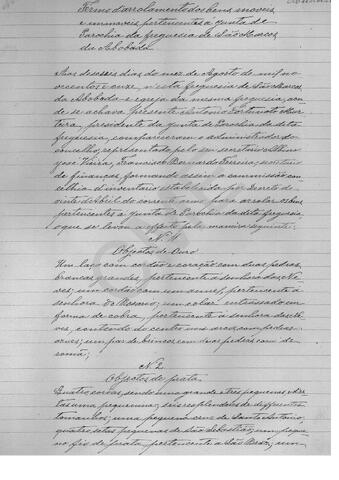 Termo d'arrolamento dos bens moveis
e immoveis pertencentes á junta de
Parochia da freguesia de São Marcos
da Abobada
Aos deseseis dias do mez de Agosto de mil no
vecentos e onze, n'esta freguesia de São Marcos
da Abobada e egreja da mesma freguesia, aon
de se achava presente Antonio Fortunato
presidente da junta de Parochia da dita
freguesia, compareceram o administrador do
concelho, representado pelo seu secretario
José Vieira, Francisco Bernardo Ferreira, secretario
de finanças, formando assim a commissão con
celhia d'inventario estabelecida por Decreto de
vinte d'Abril do corrente anno para arrolar os bens
pertencentes á junta de Parochia da dita freguesia
o que se levou a effeito pela maneira seguinte:
Nº 1
Objectos de Ouro
Um laço com cordão e coração com duas pedras
brancas grandes, pertencente á senhora das Ne
ves; um cordão com um annel, pertencente á
senhora do Rosario; um collar entrançado em
forma de cobra, pertencente á senhora das Ne
ves, contendo no centro uma com pedras
um par de brincos com duas pedras cada
Nº 2
Objectos de prata
Quatro corôas, sendo uma grande e tres pequenas
uma pequenina; seis resplendores de differentes
tamanhos; uma pequena cruz de Santo Antonio,
quatro settas pequenas de São Sebastião; um peque
no fio de prata pertencente a São Braz; um